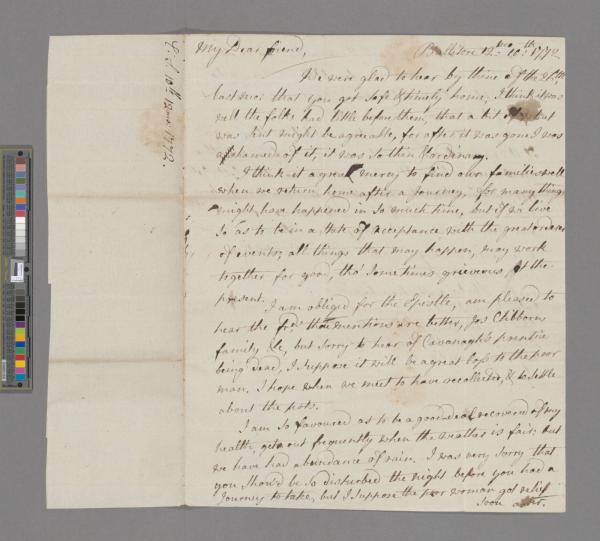 My Dear friend,
Ballitore 12th mo 10th 1772
We were glad to hear by thine of the
last mo: that you got safe & timely home, I think it was
well the folks had little before them, that a bit of
was sent might be agreeable, for after it was gone I was
ashamed of it, it was so thin & ordinary.
I think it a great mercy to find our families well
when we return home after a Journey, for many things
might have happened in so much time, but if we live
So as to be in a state of acceptance with the great orderer
of events, all things that may happen, may work
together for good, tho' sometimes grievous at the
present.
I am obliged for the Epistle, am pleased to
hear the frds thou mentions are better, Jos Clibborns
family &c, but sorry to hear of Cavanagh's prentice
being dead, I suppose it will be a great loss to the poor
man. I hope when we meet to have recollected, & to settle
about the pots.
I am so favoured as to be a good deal recovered of my
health, get out frequently when the weather is fair; but
we have had abundance of rain. I was very sorry that
you should be so disturbed the night before you had a
Journey to take, but I suppose the poor woman got relief
soon after.
10th 12mo 1772.